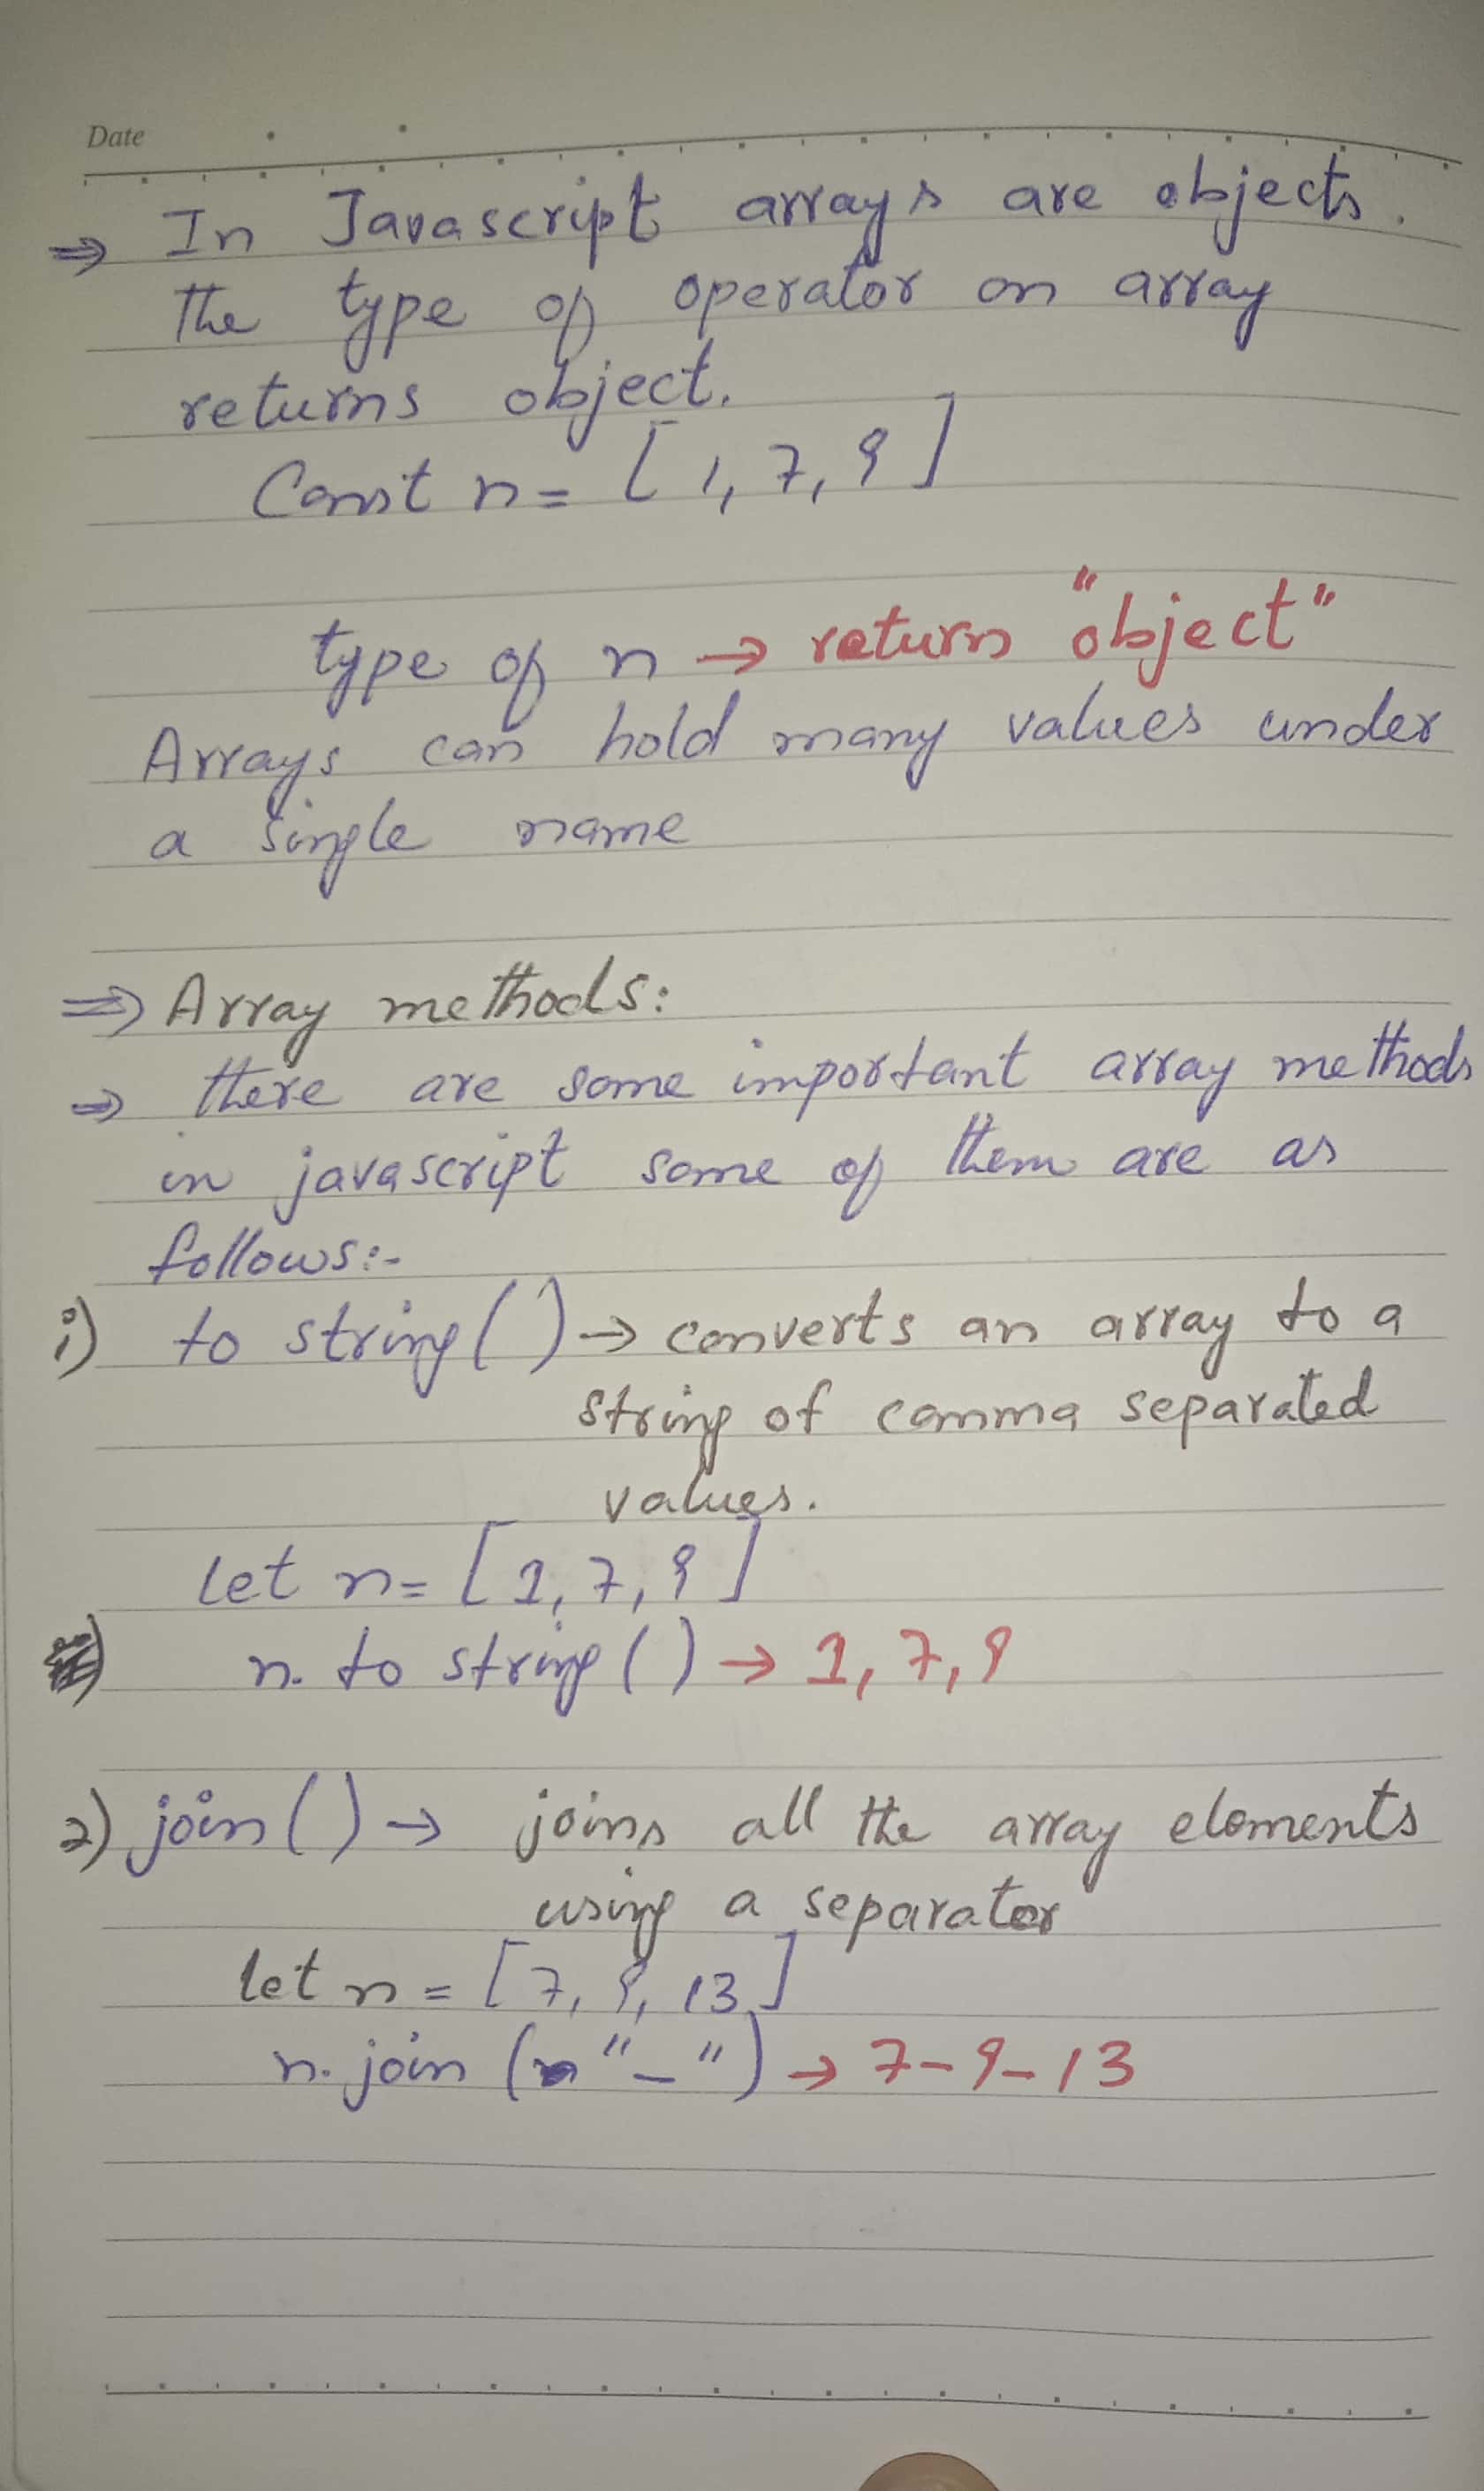 Date
⇒ In Javascript arrays are objects.
The type of operator on array
returns object.
Const n = [1, 7, 9]
type of n → return "object"
Arrays can hold many values under
a single name
⇒ Array methods:
⇒ there are some important array methods
in javascript some of them are as
follows:-
i) to string() → converts an array to a
string of comma separated
values.
let n = [1, 7, 9]
n. to string() → 1, 7, 9
2) join() → joins all the array elements
using a separator
let n = [7, 9, 13]
n. join ("-") → 7-9-13